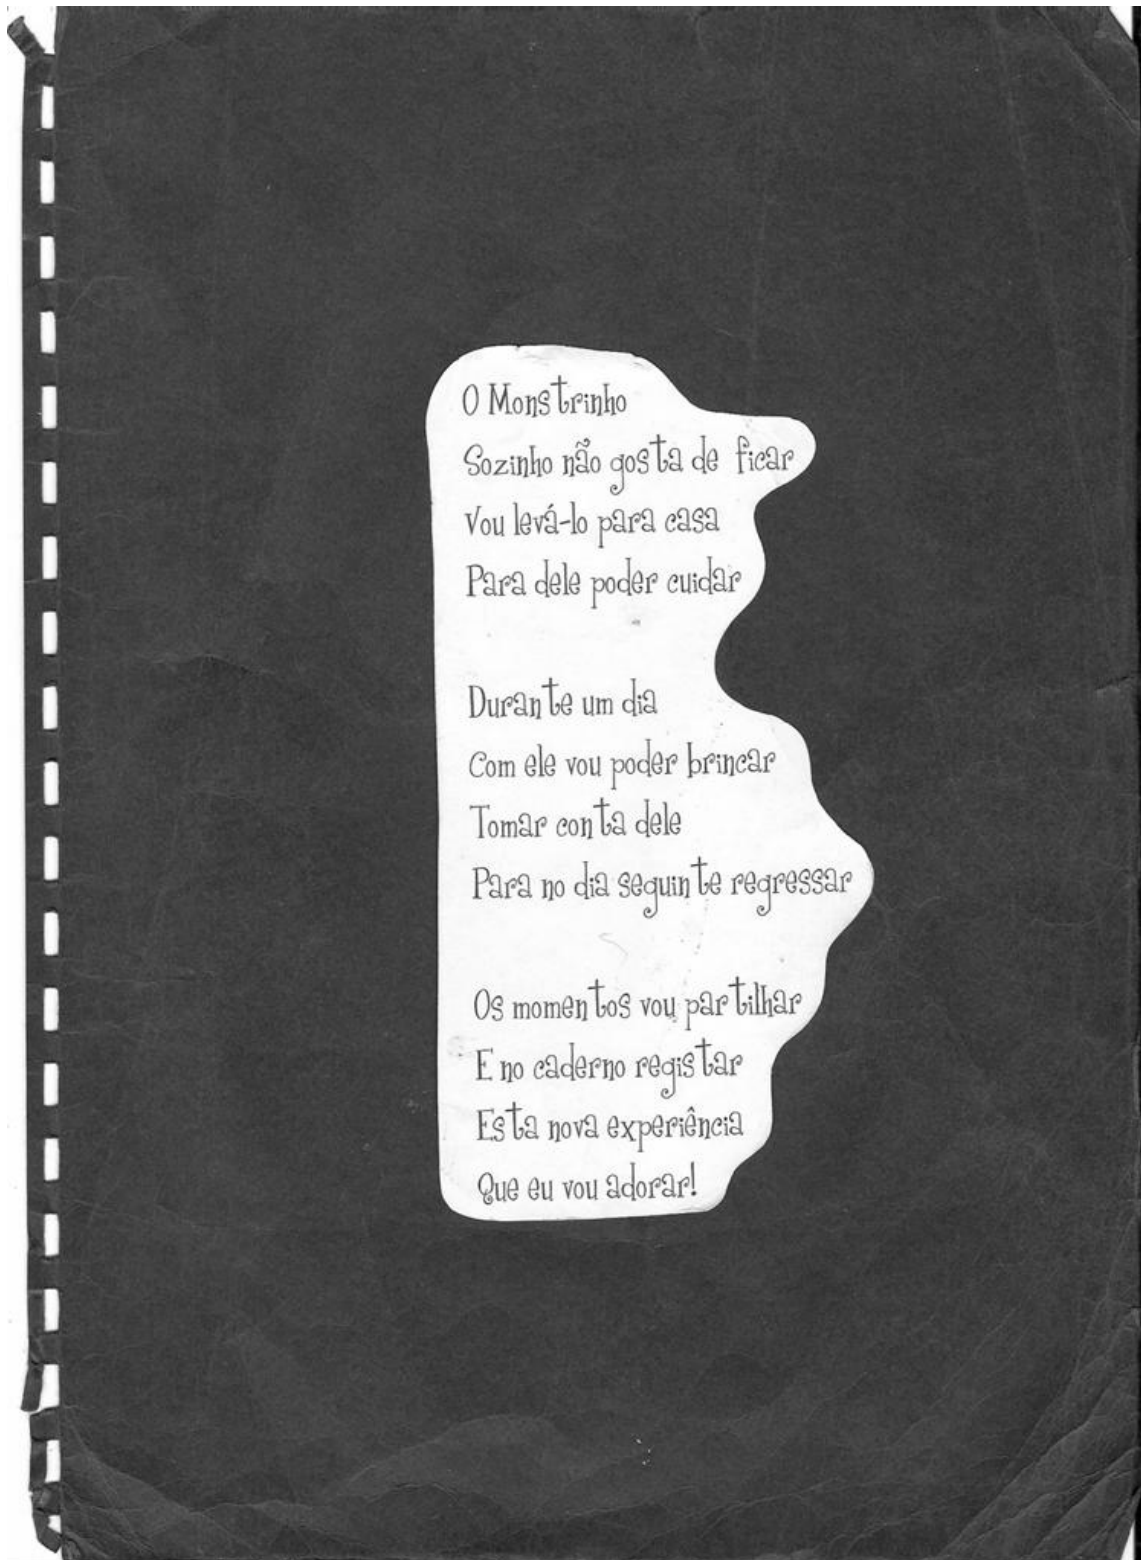 O Monstrinho
Sozinho não gosta de ficar
Vou levá-lo para casa
Para dele poder cuidar
Durante um dia
Com ele vou poder brincar
Tomar conta dele
Para no dia seguinte regressar
Os momentos vou partilhar
E no caderno registar
Esta nova experiência
Que eu vou adorar!